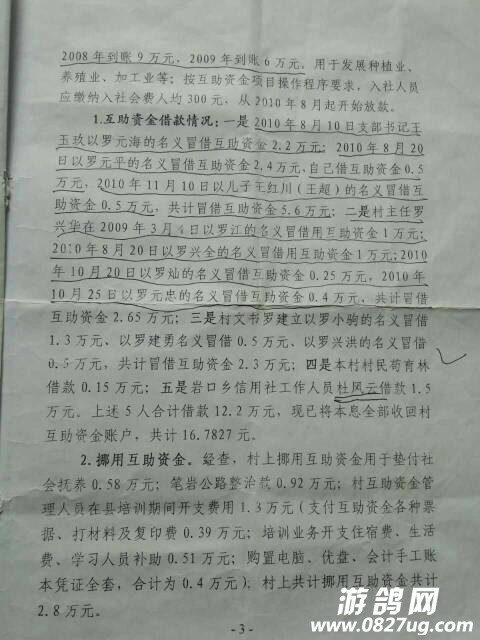 2008年到账9万元，2009年到账6万元，用于发展种植业、
养殖业、加工业等；按互助资金项目操作程序要求，入社人员
应缴纳入社会费人均300元，从2010年8月起开始放款。
1.互助资金借款情况：一是2010年8月10日支部书记王
玉玖以罗元海的名义冒借互助资金2.2万元；2010年8月20
日以罗元平的名义冒借互助资金2.4万元，自己借互助资金0.5
万元，2010年11月10日以儿子王红川（王超）的名义冒借互
助资金0.5万元，共计冒借互助资金5.6万元；二是村主任罗
兴华在2009年3月4日以罗江的名义冒借用互助资金1万元；
2010年8月20日以罗兴全的名义冒借用互助资金1万元；2010
年10月20日以罗灿的名义冒借互助资金0.25万元，2010年
10月25日以罗元忠的名义冒借互助资金0.4万元，共计冒借
互助资金2.65万元；三是村文书罗建立以罗小驹的名义冒借
1.3万元、以罗建勇名义冒借0.5万元、以罗兴洪的名义冒借
0.5万元，共计冒借互助资金2.3万元；四是本村村民苟育林
借款0.15万元；五是岩口乡信用社工作人员杜风云借款1.5
万元。上述5人合计借款12.2万元，现已将本息全部收回村
互助资金账户，共计16.7827元。
2.挪用互助资金。经查，村上挪用互助资金用于垫付社
会抚养0.58万元；笔岩公路整治款0.92万元；村互助资金管
理人员在县培训期间开支费用1.3万元（支付互助资金各种票
据、打材料及复印费0.39万元；培训业务开支住宿费、生活
费、学习人员补助0.51万元；购置电脑、优盘、会计手工账
本凭证全套，合计为0.4万元）；村上共计挪用互助资金共计
2.8万元。
- 3 -
游鸽网
www.0827ug.com